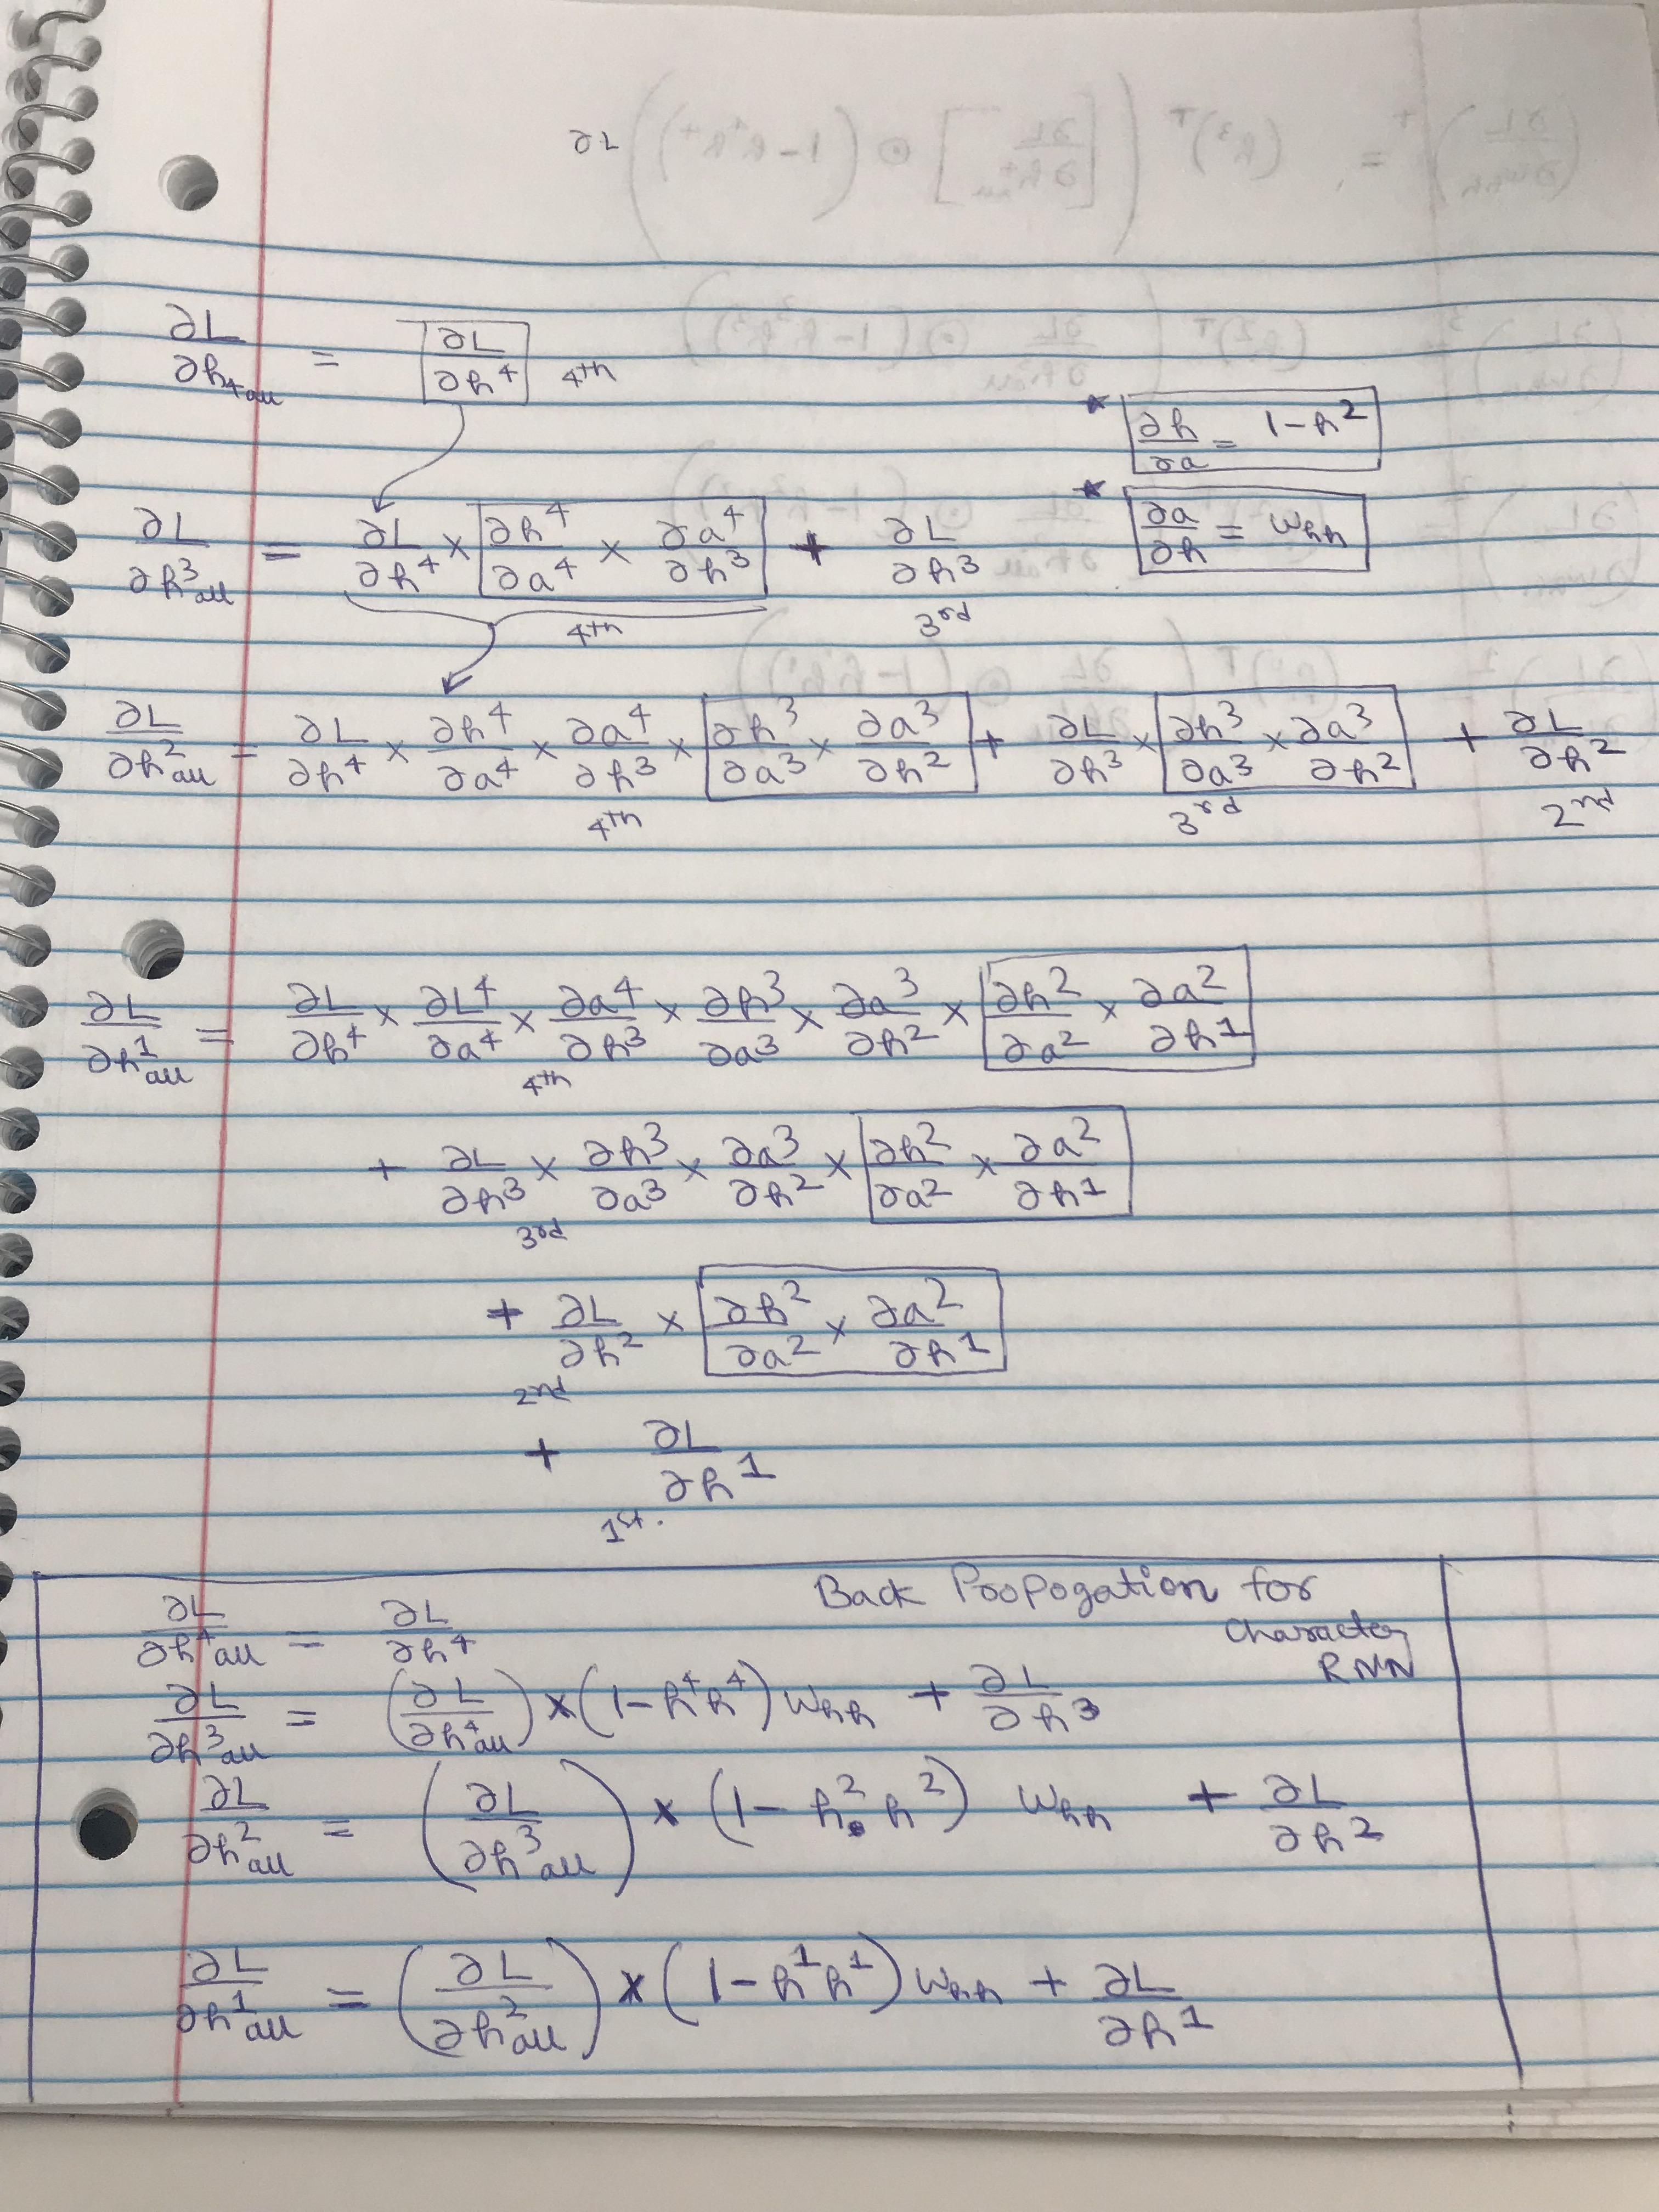 ∂L
∂L/∂h₄all = ∂L/∂h⁴ 4th
* ∂h/∂a = 1-h²
* ∂a/∂h = Whh
∂L/∂h³all = ∂L/∂h⁴ × ∂h⁴/∂a⁴ × ∂a⁴/∂h³ + ∂L/∂h³
4th 3rd
∂L/∂h²all = ∂L/∂h⁴ × ∂h⁴/∂a⁴ × ∂a⁴/∂h³ × ∂h³/∂a³ × ∂a³/∂h² + ∂L/∂h³ × ∂h³/∂a³ × ∂a³/∂h² + ∂L/∂h²
4th 3rd 2nd
∂L/∂h¹all = ∂L/∂h⁴ × ∂L⁴/∂a⁴ × ∂a⁴/∂h³ × ∂h³/∂a³ × ∂a³/∂h² × ∂h²/∂a² × ∂a²/∂h¹
4th
+ ∂L/∂h³ × ∂h³/∂a³ × ∂a³/∂h² × ∂h²/∂a² × ∂a²/∂h¹
3rd
+ ∂L/∂h² × ∂h²/∂a² × ∂a²/∂h¹
2nd
+ ∂L/∂h¹
1st.
Back Propogation for
Character
RNN
∂L/∂h⁴all = ∂L/∂h⁴
∂L/∂h³all = (∂L/∂h⁴all) × (1-h⁴h⁴) Whh + ∂L/∂h³
∂L/∂h²all = (∂L/∂h³all) × (1-h².h²) Whh + ∂L/∂h²
∂L/∂h¹all = (∂L/∂h²all) × (1-h¹h¹) Whh + ∂L/∂h¹